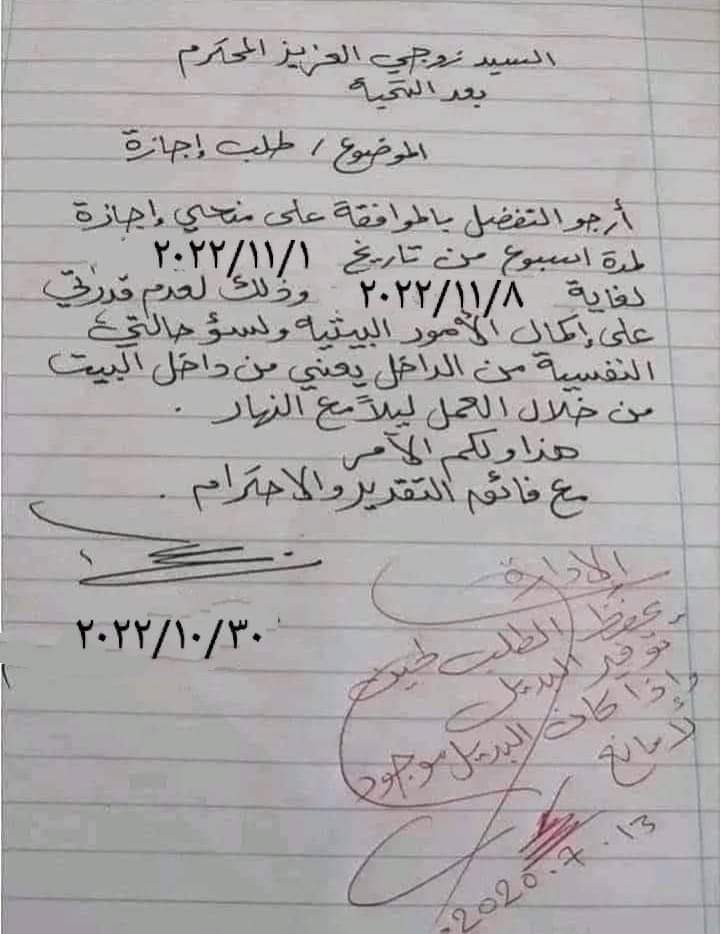 السيد زوجي العزيز المحترم
بعد التحية
الموضوع / طلب إجازة
أرجو التفضل بالموافقة على منحي إجازة
لمدة اسبوع من تاريخ ٢٠٢٢/١١/١
لغاية ٢٠٢٢/١١/٨ وذلك لعدم قدرتي
على إكمال الأمور البيتيه ولسؤ حالتي
النفسية من الداخل يعني من داخل البيت
من خلال العمل ليلاً مع النهار .
هذا ولكم الأمر
مع فائق التقدير والاحترام .
٢٠٢٢/١٠/٣٠
الإدارة
يحفظ الطلب لحين
توفير البديل
وإذا كان البديل موجود
لا مانع
2020.7.13